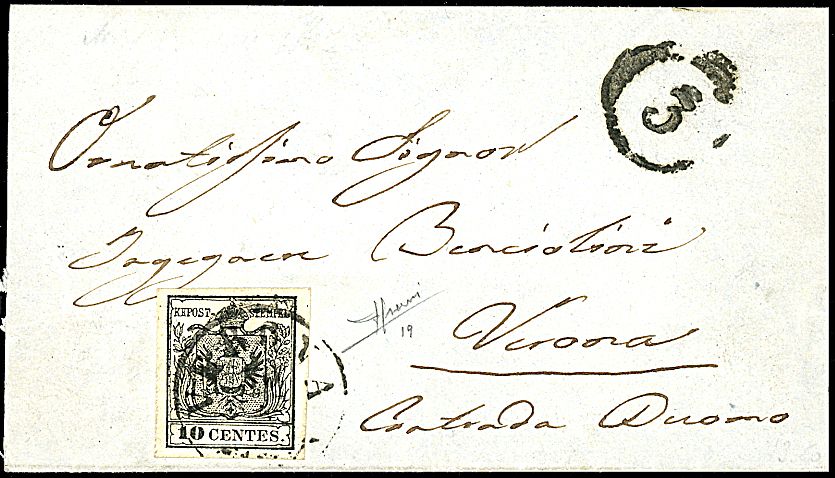 Ornatissimo Signor
Ingegnere
Verona
Contrada Duomo
KKPOST-STEMPEL
10 CENTES.
19